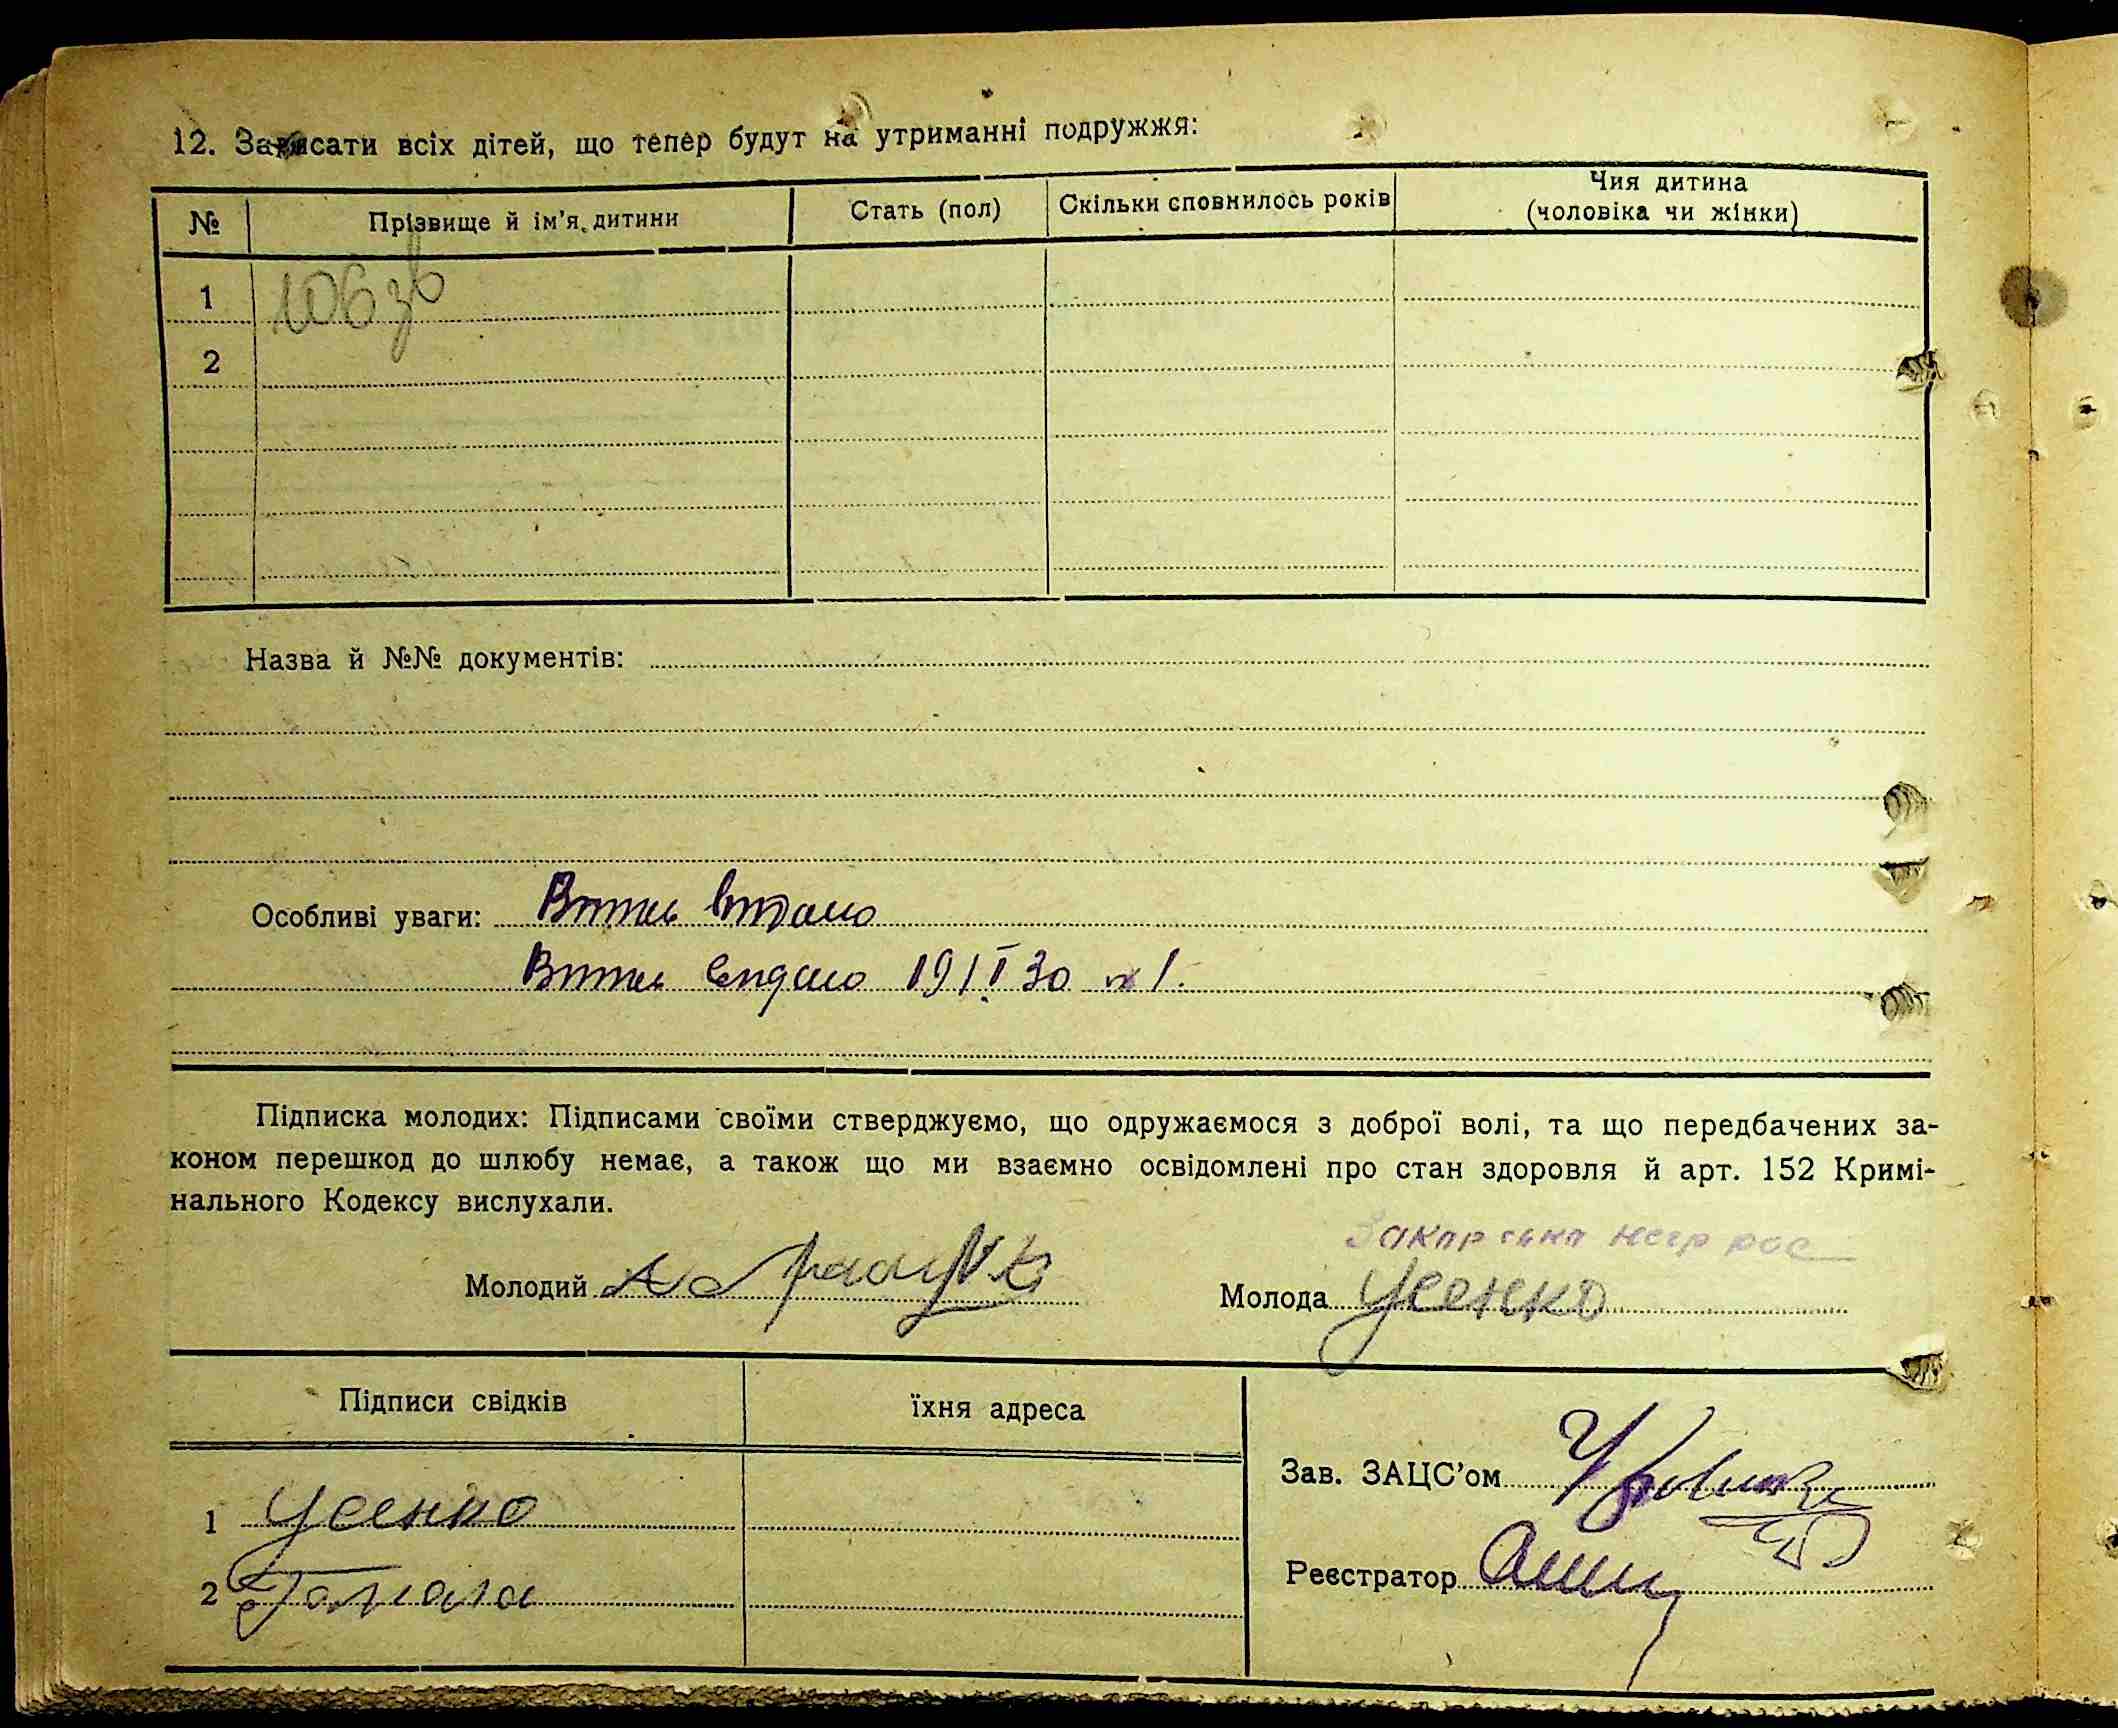 12. Записати всіх дітей, що тепер будут на утриманні подружжя:
№ Прізвище й ім'я дитини Стать (пол) Скільки сповнилось років Чия дитина (чоловіка чи жінки)
1 106 зв
2
Назва й №№ документів:
Особливі уваги: Витяг видано
Витяг видано 19/I 30 № 1.
Підписка молодих: Підписами своїми стверджуємо, що одружаємося з доброї волі, та що передбачених за-
коном перешкод до шлюбу немає, а також що ми взаємно освідомлені про стан здоровля й арт. 152 Кримі-
нального Кодексу вислухали.
Молодий
Молода Усенко
Підписи свідків їхня адреса
1 Усенко
2
Зав. ЗАЦС'ом
Реєстратор